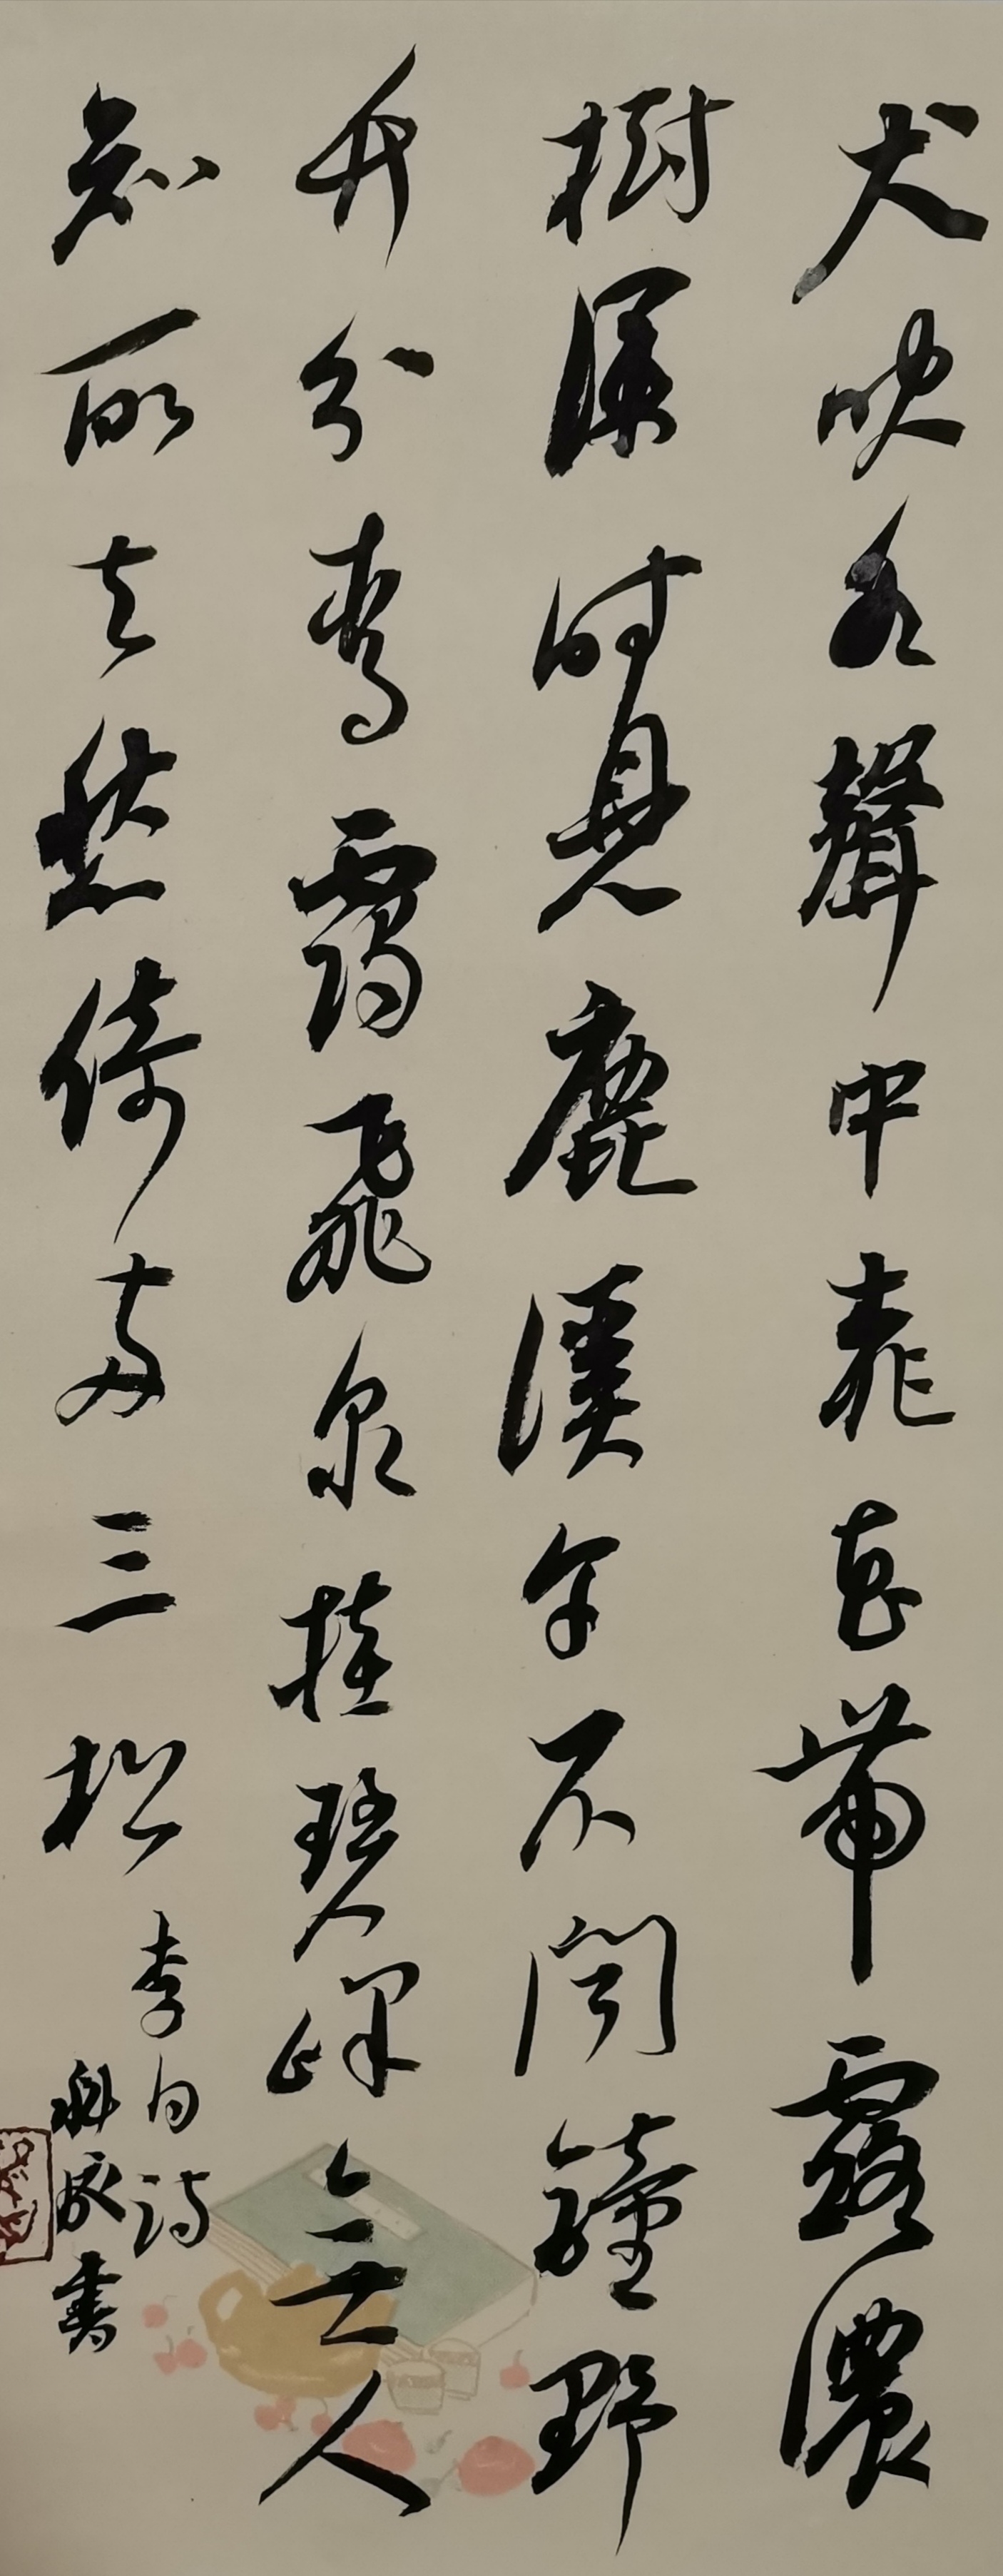 犬吠水聲中桃花帶露濃
樹深時見鹿溪午不聞鐘野
竹分青靄飛泉挂碧峰無人
知所去愁倚兩三松
李白詩
書